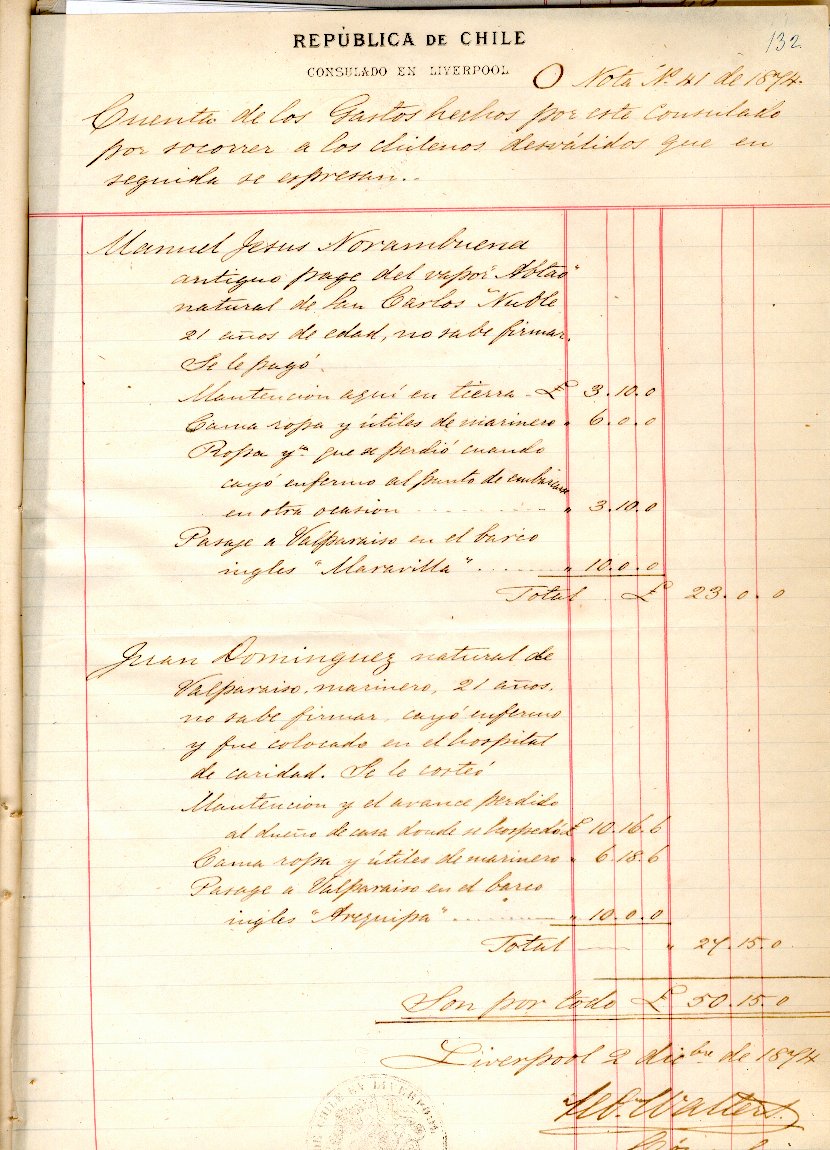 132
REPÚBLICA DE CHILE
CONSULADO EN LIVERPOOL
Nota N.º 41 de 1874.
Cuenta de los Gastos hechos por este Consulado
por socorrer a los chilenos desválidos que en
seguida se espresan..
Manuel Jesus Norambuena
antiguo page del vapor "Abtao"
natural de San Carlos "Nuble
21 años de edad, no sabe firmar.
Se le pagó
Mantencion aquí en tierra - £ 3.10.0
Cama ropa y útiles de marinero " 6.0.0
Ropa yª que se perdió cuando
cayó enfermo al punto de embarcarse
en otra ocasion " 3.10.0
Pasage a Valparaiso en el barco
ingles "Maravilla" " 10.0.0
Total £ 23.0.0
Juan Dominguez natural de
Valparaiso, marinero, 21 años,
no sabe firmar, cayó enfermo
y fue colocado en el hospital
de caridad. Se le costeó
Mantencion y el avance perdido
al dueño de casa donde se hospedó £ 10.16.6
Cama ropa y útiles de marinero " 6.18.6
Pasage a Valparaiso en el barco
ingles "Arequipa" " 10.0.0
Total " 27.15.0
Son por todo £ 50.15.0
Liverpool 2 dicbre de 1874
Walters
DE CHILE EN LIVERPOOL